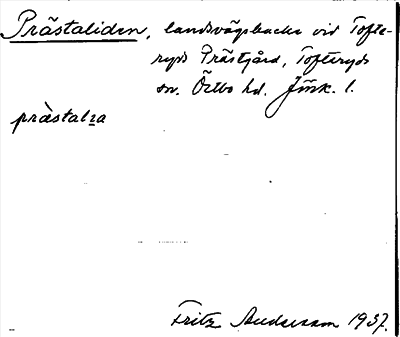 Prästaliden, landsvägsbacke vid Tofte-
ryds Prästgård, Tofteryds
sn. Östbo hd. Jönk. l.
prästalia
Fritz Andersson 1937.